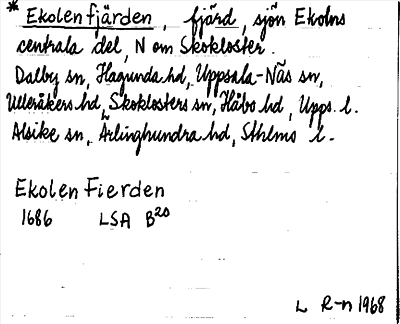 * Ekolenfjärden, fjärd, sjön Ekolns
centrala del, N om Skokloster.
Dalby sn, Hagunda hd, Uppsala-Näs sn,
Ulleråkers hd, Skoklosters sn, Håbo hd, Upps. l.
Alsike sn, Ärlinghundra hd, Sthlms l.
Ekolen Fierden
1686 LSA B20
L R-n 1968